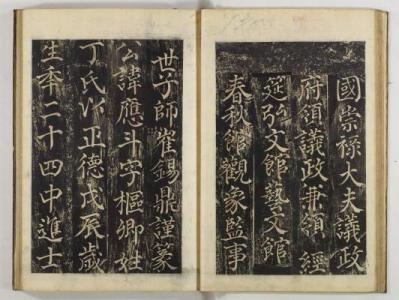 國崇祿大夫議政
府領議政兼領經
筵弘文館藝文館
春秋館觀象監事
世子師崔錫鼎謹篆
公諱應斗字樞卿姓
丁氏以正德戊辰歲
生年二十四中進士